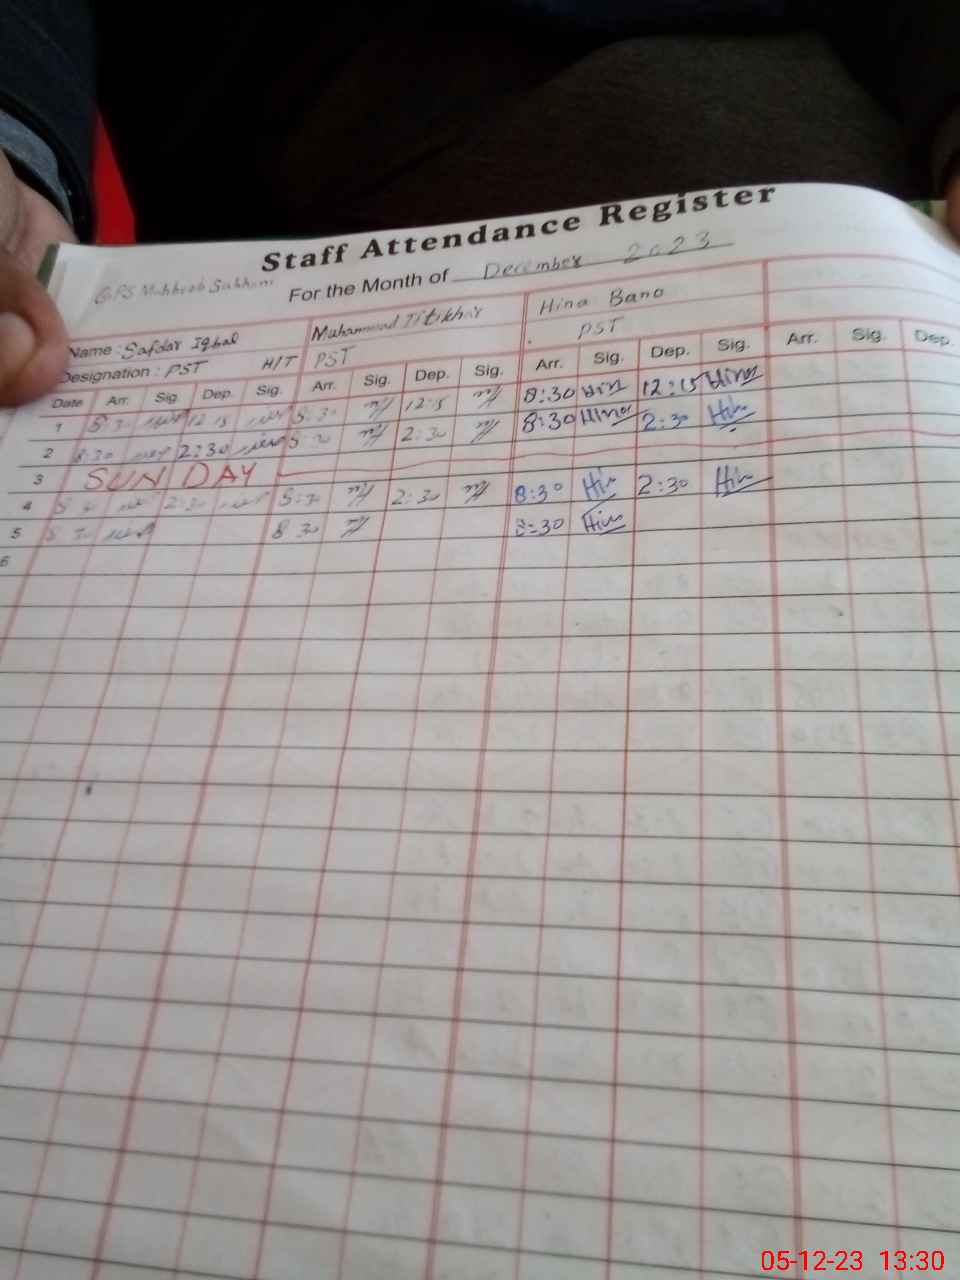 Staff Attendance Register
For the Month of December 2023
GPS Mahboob Subhani
Name : Safdar Iqbal Muhammad Iftikhar Hina Bano
Designation : PST H/T PST PST
Date Arr. Sig. Dep. Sig. Arr. Sig. Dep. Sig. Arr. Sig. Dep. Sig. Arr. Sig. Dep.
1 8:30 12:15 8:30 12:15 8:30 Hina 12:15 Hina
2 8:30 2:30 8:30 2:30 8:30 Hina 2:30 Hin
3 SUNDAY
4 8:30 2:30 8:30 2:30 8:30 Hin 2:30 Hin
5 8:30 8:30 8:30 Hin
6
05-12-23 13:30